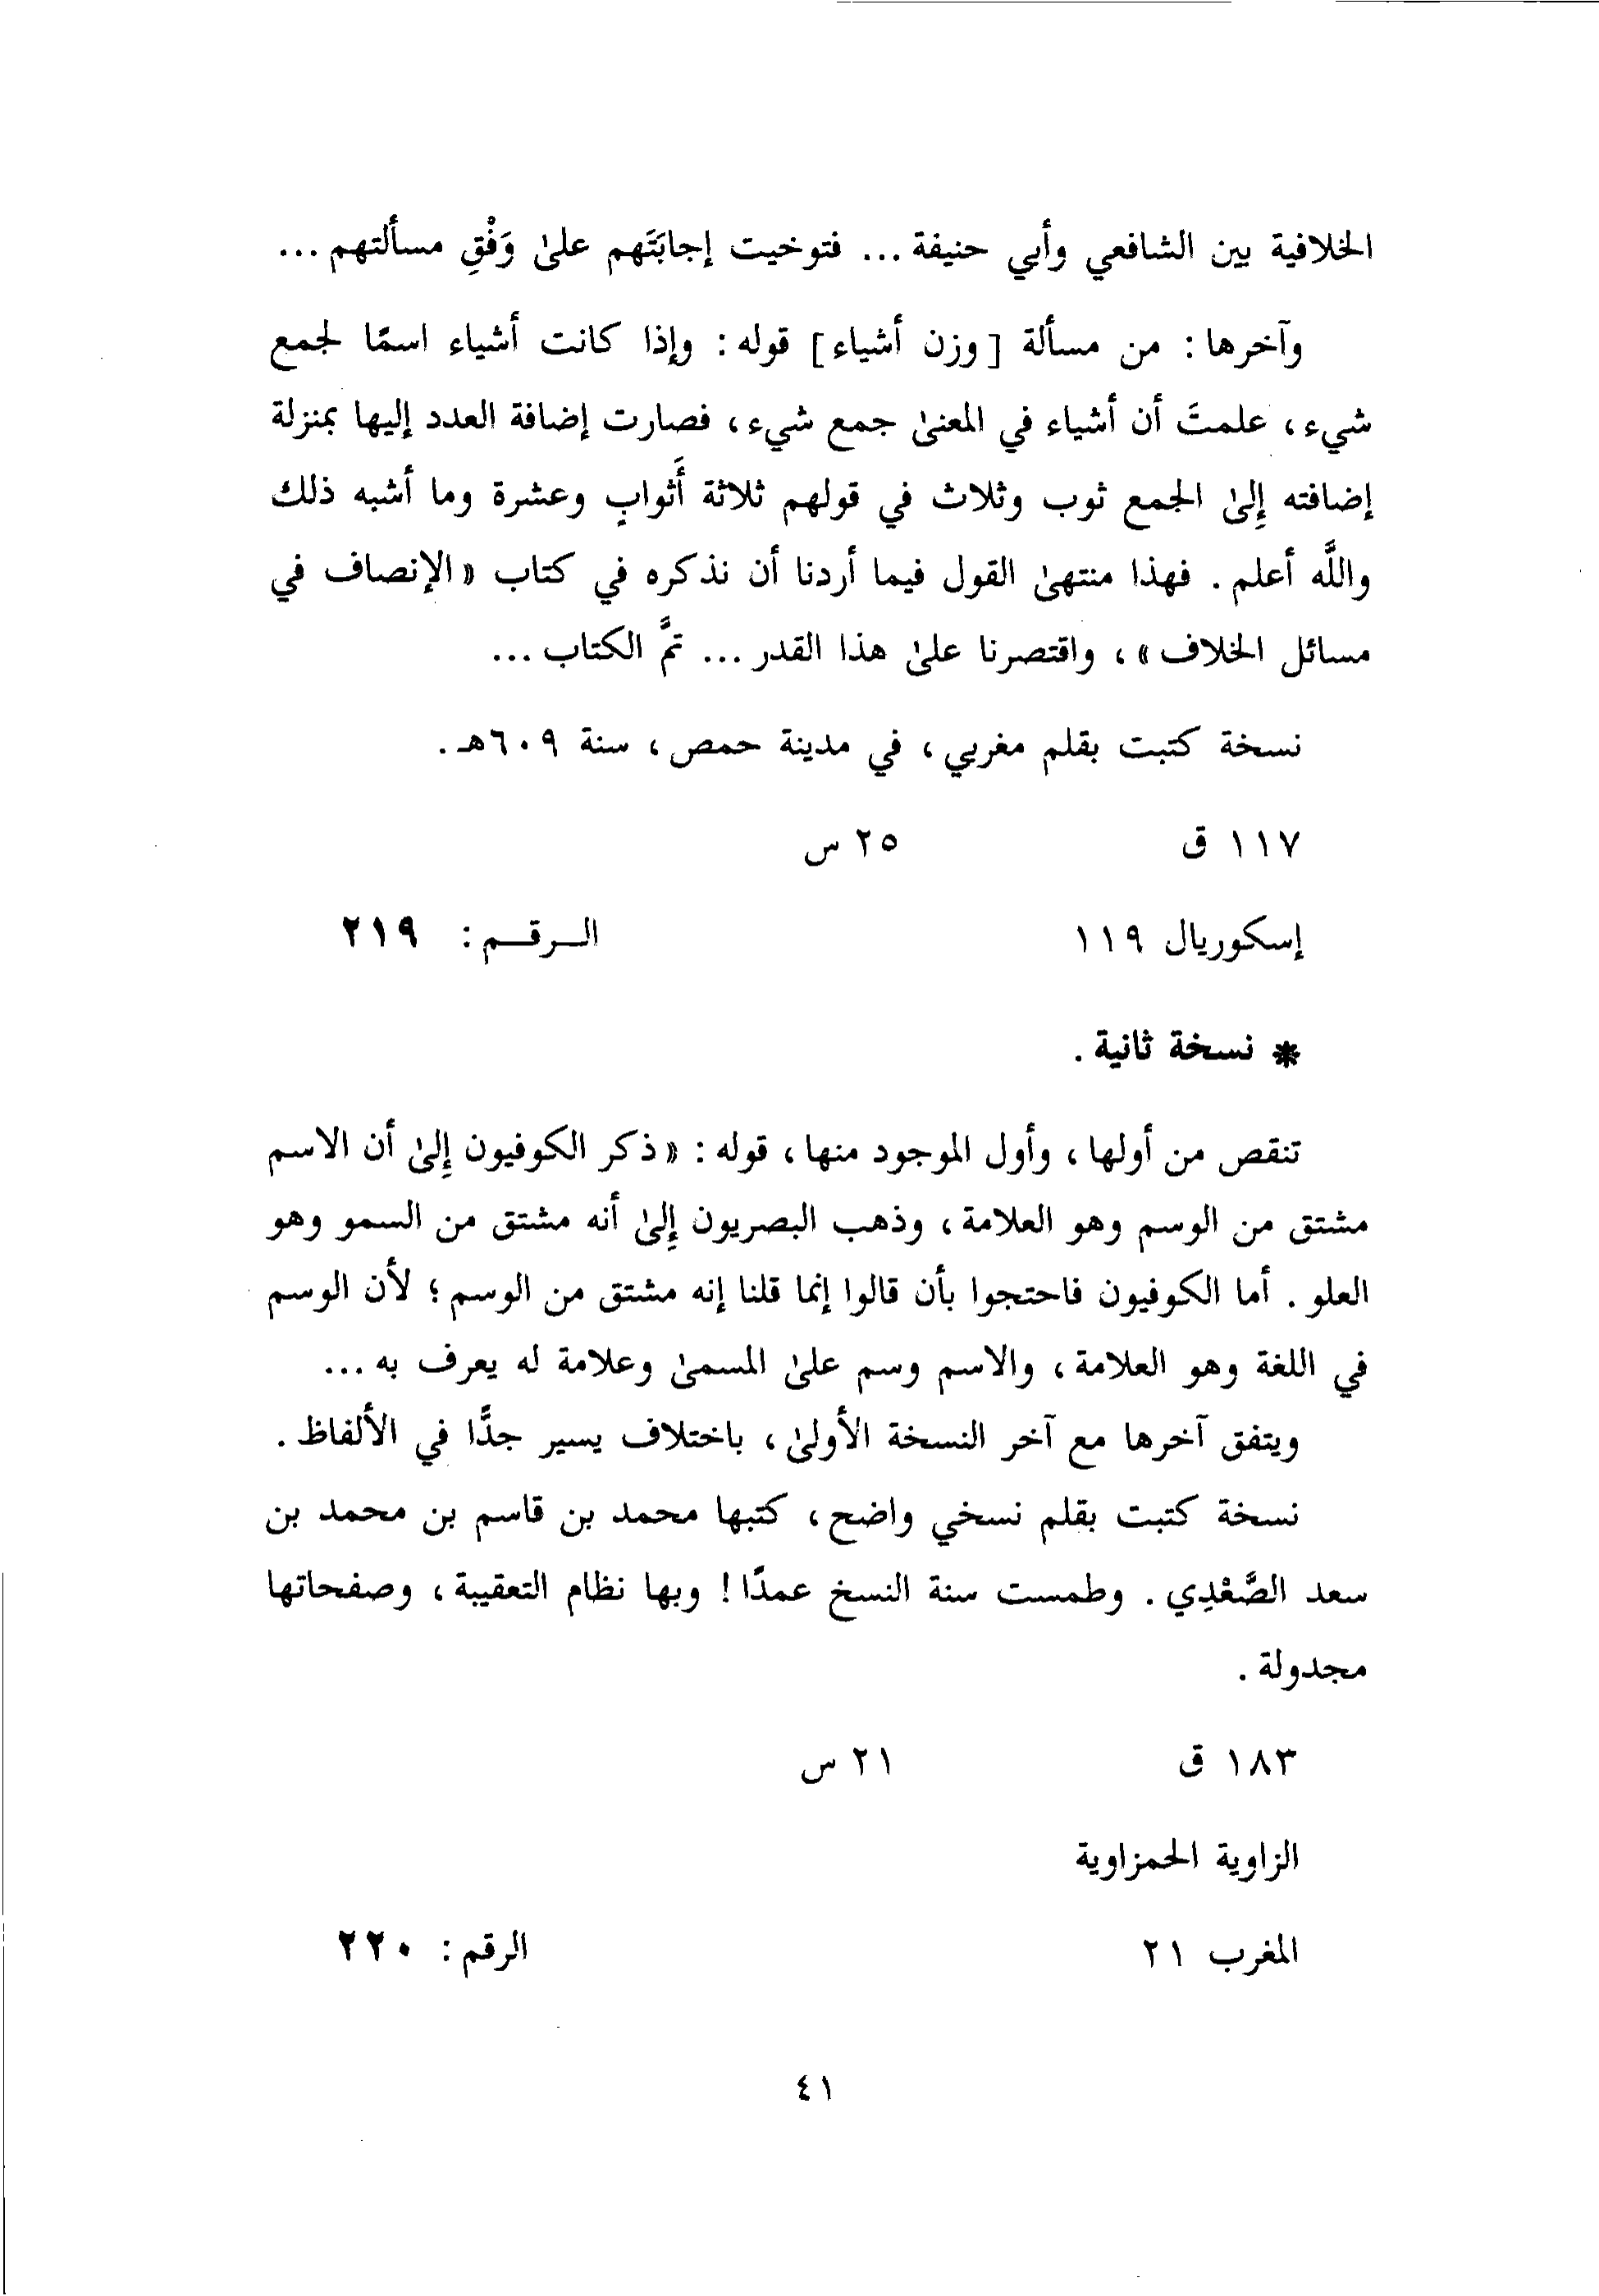 الخلافية بين الشافعي وأبي حنيفة ... فتوخيت إجابَتَهم علىٰ وَفْقِ مسألتهم ...
وآخرها : من مسألة [ وزن أشياء ] قوله : وإذا كانت أشياء اسمًا لجمع
شيء ، علمتَ أن أشياء في المعنىٰ جمع شيء ، فصارت إضافة العدد إليها بمنزلة
إضافته إِلىٰ الجمع ثوب وثلاث في قولهم ثلاثة أَثوابٍ وعشرة وما أشبه ذلك
واللَّه أعلم . فهذا منتهىٰ القول فيما أردنا أن نذكره في كتاب « الإنصاف في
مسائل الخلاف » ، واقتصرنا علىٰ هذا القدر ... تمَّ الكتاب ...
نسخة كتبت بقلم مغربي ، في مدينة حمص ، سنة ٦٠٩هـ .
١١٧ ق ٢٥ س
إسكوريال ١١٩ الـرقـم : ٢١٩
* نسخة ثانية .
تنقص من أولها ، وأول الموجود منها ، قوله : « ذكر الكوفيون إِلىٰ أن الاسم
مشتق من الوسم وهو العلامة ، وذهب البصريون إِلىٰ أنه مشتق من السمو وهو
العلو . أما الكوفيون فاحتجوا بأن قالوا إنما قلنا إنه مشتق من الوسم ؛ لأن الوسم
في اللغة وهو العلامة ، والاسم وسم علىٰ المسمىٰ وعلامة له يعرف به ...
ويتفق آخرها مع آخر النسخة الأولىٰ ، باختلاف يسير جدًّا في الألفاظ .
نسخة كتبت بقلم نسخي واضح ، كتبها محمد بن قاسم بن محمد بن
سعد الصَّعْدِي . وطمست سنة النسخ عمدًا ! وبها نظام التعقيبة ، وصفحاتها
مجدولة .
١٨٣ ق ٢١ س
الزاوية الحمزاوية
المغرب ٢١ الرقم : ٢٢٠
٤١